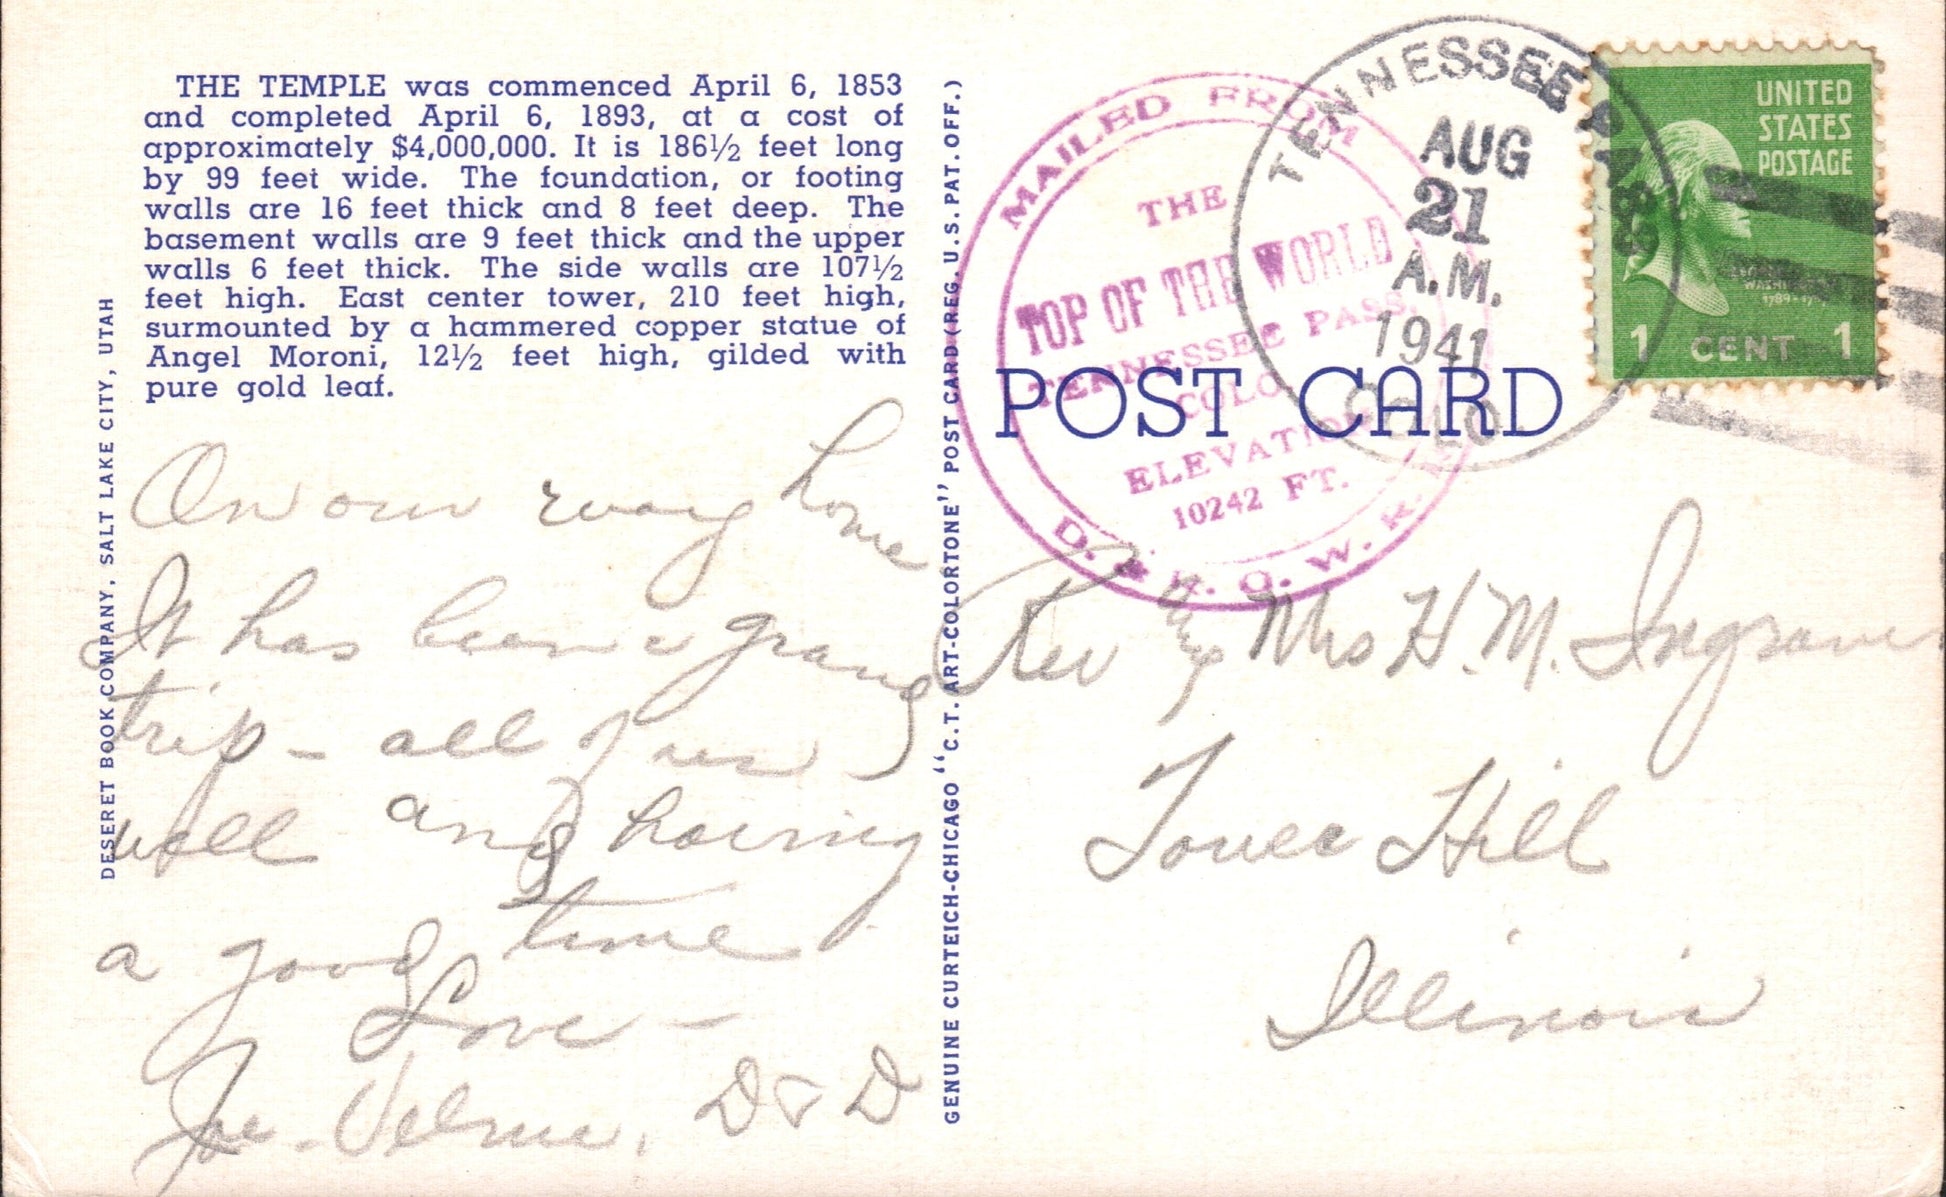 THE TEMPLE was commenced April 6, 1853
and completed April 6, 1893, at a cost of
approximately $4,000,000. It is 186½ feet long
by 99 feet wide. The foundation, or footing
walls are 16 feet thick and 8 feet deep. The
basement walls are 9 feet thick and the upper
walls 6 feet thick. The side walls are 107½
feet high. East center tower, 210 feet high,
surmounted by a hammered copper statue of
Angel Moroni, 12½ feet high, gilded with
pure gold leaf.
DESERET BOOK COMPANY, SALT LAKE CITY, UTAH
On our way home
It has been a grand
trip - all of us
well and having
a good time
Love -
Joe - Velma, D & D
GENUINE CURTEICH-CHICAGO "C.T. ART-COLORTONE" POST CARD (REG. U.S. PAT. OFF.)
MAILED FROM
THE
TOP OF THE WORLD
TENNESSEE PASS.
COLO.
ELEVATION
10242 FT.
D. & R. G. W. R. R.
TENNESSEE PASS
AUG
21
A.M.
1941
COLO.
UNITED
STATES
POSTAGE
1789-
1 CENT 1
POST CARD
Rev & Mrs H. M. Ingraven
Tower Hill
Illinois